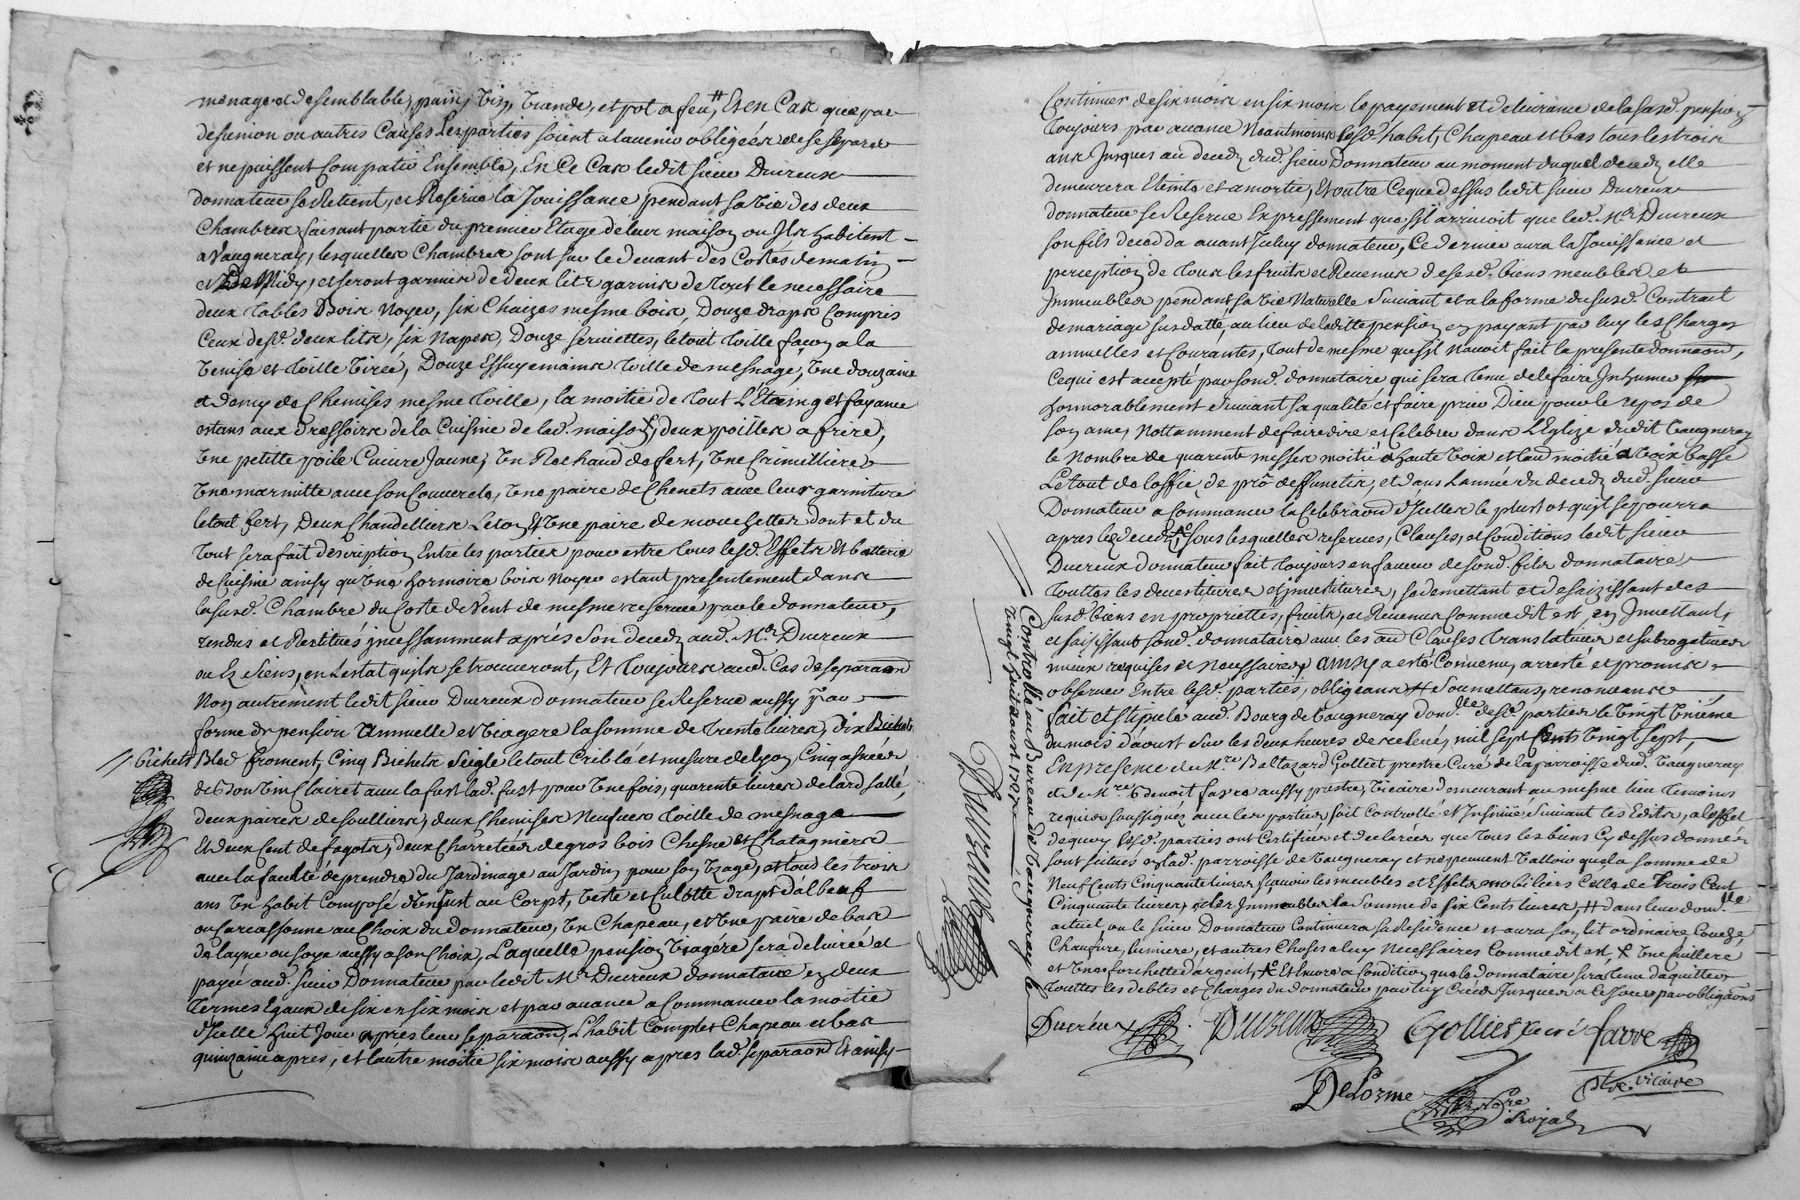 menage et desemblable, pain, vin, viande, et pot a feu, # Et en Cas que par
desunion ou autres Causes Les parties soient a lavenir obligées de se separer
et ne puissent Compatir Ensemble, En Ce Cas ledit sieur Ducreux
donnateur se Retient, et Reserve la Jouissance pendant sa vie des deux
Chambres faisant partie du premier Etage de leur maison ou Ils habitent
a Vaugneray, lesquelles Chambres sont sur le devant des Costés de matin
et de Midy, et seront garnies de deux lits garnis de tout le necessaire
deux tables Bois Noyer, six Chaizes mesme bois, Douze draps Compris
Ceux desd. deux lits, six Napes, Douze serviettes, le tout toille façon a la
Venise et toille Tirée, Douze Essuyemains toille de mesnage, Une douzaine
et demy de Chemises mesme toille, la moitié de tout L'Etaing et fayance
estans aux dressoirs de la Cuisine de lad. maison, deux poilles a frire,
Une petitte poile Cuivre Jaune, Un Rechaud de fert, Une Crimilliere
Une marmitte avec son Couvercle, Une paire de Chenets avec leur garniture
le tout fert, Deux Chandelliers Leton, Et Une paire de mouchettes dont et du
tout sera fait description Entre les parties pour estre tous lesd. Effets Et batterie
de Cuisine ainsy qu'Une hormoire bois noyer estant presentement dans
lasusd. Chambre du Costé de Vent de mesme reservée par le donnateur,
rendus et Restitués incessamment aprés son decedz aud. Mr. Ducreux
ou Es siens, en lestat quils se trouveront, Et toujours aud. Cas de separaon
Non autrement ledit sieur Ducreux donnateur se Reserve aussy par
forme de pension Annuelle et viagere la somme de trente livres, dix Bichets
// bichets Bled froment, Cinq Bichets Seigle le tout Criblé et mesure de Lyon Cinq asnées
de bon Vin Clairet avec la fust lad. fust pour Une fois, quarente livres de lard sallé,
deux paires de soulliers, deux Chemises Neufves toille de mesnage
Et deux Cent de fagots, deux Charretées de gros bois Chesne et Chatagniers
avec la faculté de prendre du Jardinage au Jardin pour son Uzage, et tous les trois
ans Un habit Composé au Corps, Veste et Culotte draps Dalbeuf
ou Carcassonne au Choix du Donnateur, Un Chapeau, et Une paire de bas
de layne ou soye aussy a son Choix, Laquelle pension Viagére sera delivrée et
payée aud. sieur Donnateur par ledit Mr. Ducreux donnataire en deux
termes Egaux de six en six mois et par avance a Commancer la moitié
d'Icelle huit Jour aprés leur separaon, L'habit Complet Chapeau et bas
quinzaine apres, et lautre moitié six mois aussy apres lad. separaon Et ainsy
Continuer de six mois en six mois le payement et delivrance de la susd. pension
toujours par avance Neantmoins lesd. habit, Chapeau et bas tous les trois
ans Jusques au decedz dud. sieur Donnateur au moment duquel decedz elle
demeurera Eteinte et amortie, Et outre Ce que dessus ledit sieur Ducreux
donnateur se Reserve Expressement que s'il arrivoit que led. Mr. Ducreux
son fils deceda avant Iceluy donnateur, Ce dernier aura la Jouissance et
perception de tous les fruits et Revenus de sesd. biens meubles et
Immeubles pendant sa vie Naturelle Suivant et a la forme du susd. Contract
de mariage susdatté, au lieu de laditte pension en payant par luy les Charges
annuelles et Courantes, tout de mesme que s'il N'avoit fait la presente donnaon,
Ce qui est accepté par sond. donnataire qui sera tenu de le faire Inhumer
honnorablement suivant sa qualité et faire prier Dieu pour le repos de
son ame, Nottamment de faire dire et Celebrer dans L'Eglize dudit Vaugneray
le Nombre de quarente messes moitié a haute voix et laud. moitié a voix basse
Le tout de loffice de pro deffunctis, et dans Lannée du decedz dud. sieur
Donnateur a Commancer la Celebraon d'Icelles le plustot quil se pourra
apres led. decedz sous lesquelles reserves, Clauses, et Conditions ledit sieur
Ducreux donnateur fait toujours en faveur de sond. fils donnataire
touttes les devestitures et Investitures, se demettant et Desaizissant des
susd. biens en proprietté, fruits, et Revenus Comme dit est, en Inmettant,
et saisissant sond. donnataire avec les Clauses translatives et subrogatives
mieux requises et Necessaires, Ainsy a esté Convenu, arresté et promis
observer Entre lesd. parties, obligeans # soumettans, renonceans
fait et stipulé aud. Bourg de Vaugneray desd. parties le Vingt Uniéme
du mois d'aoust Sur les deux heures de relevé, mil sept Cents Vingt sept,
En presence de Mre. Baltazard Golliet prestre Curé de la parroisse dud. Vaugneray
et de Mre. Benoit favre aussy prestre, Vicaire demeurant au mesme lieu temoins
requis soussignez avec les parties soit Controllé et Insinué Suivant les Edits, a l'effet
de quoy lesd. parties ont Certifiées et declarées que tous les biens Cy dessus donnés
sont scitués en lad. parroisse de Vaugneray et ne peuvent Valloir que la somme de
Neuf Cents Cinquante livres sçavoir les meubles et Effets mobiliers Celle de trois Cent
Cinquante livres, et les Immeubles la Somme de six Cents livres, # dans leur domlle
actuel ou le sieur Donnateur Continuera sa Residence et aura son lit ordinaire
Chaufure, lumiere, et autres Choses a luy Necessaires Comme dit est, X Une Cuillere
et Une forchette d'argent, Xo Et encore a Condition que le donnataire sera tenu d'aquitter
touttes les debtes et Charges du donnateur par luy Crées Jusques a Ce Jour par obligaons
Ducreux Ducreux Golliet curé favre
ptre. vicaire
DeLorme
Nore
Royal
Controllé au Bureau de Vaugneray le
vingt huit aoust 1727
Ducreux